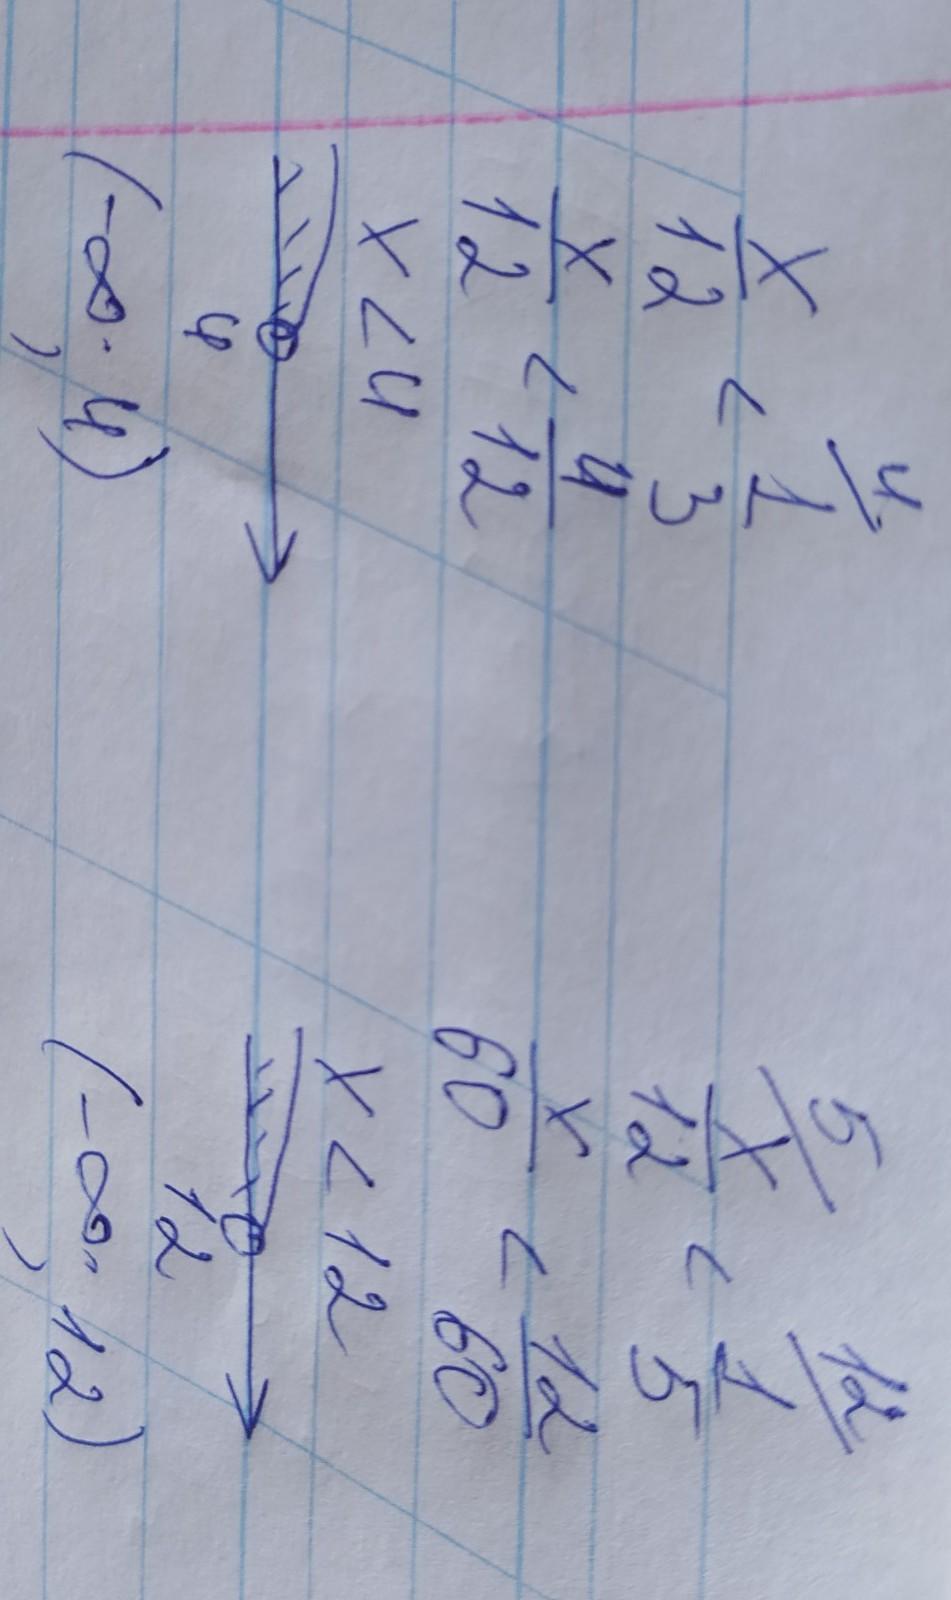 x/12 < 1/3 /4
x/12 < 4/12
x < 4
4
(-∞; 4)
5/ x/12 < 1/5 /12
x/60 < 12/60
x < 12
12
(-∞; 12)